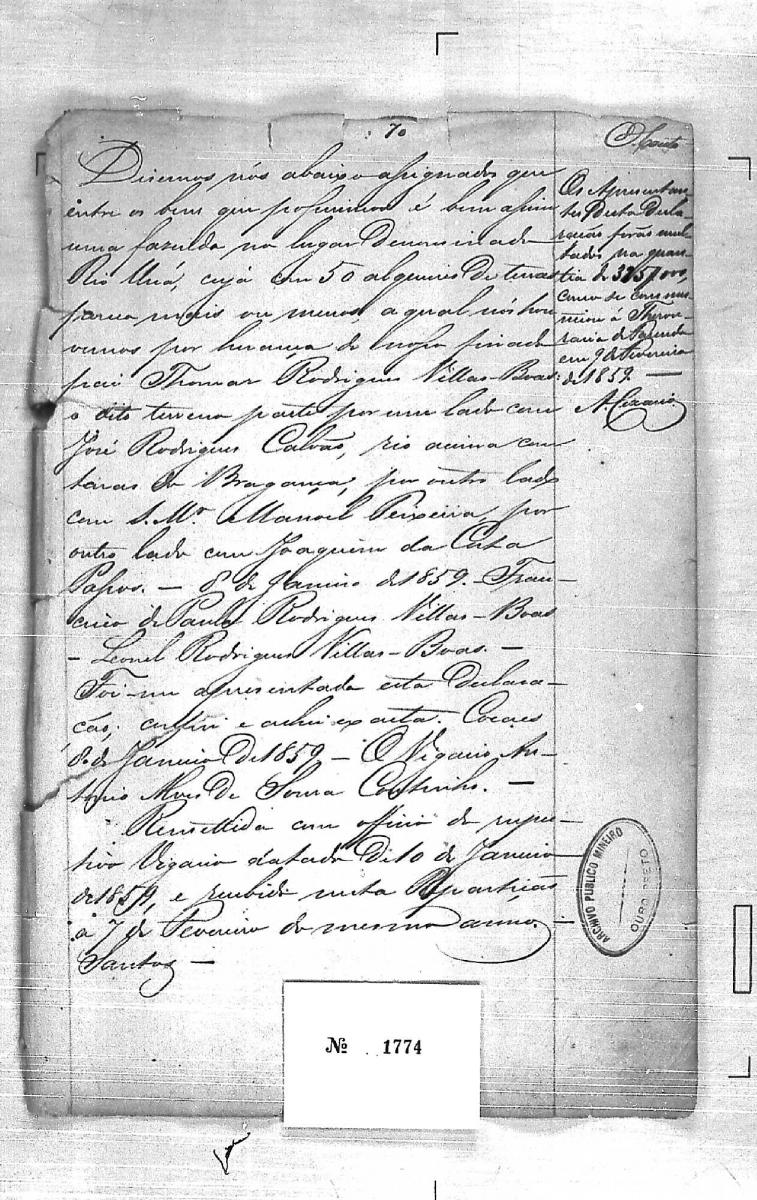 70
Disemos nós abaixo assignados que
entre os bens que possuimos é bem assim
uma fazenda no lugar denominado
Rio Una, cuja tem 50 alqueires de terras
pouco mais ou menos, a qual nós hou
vemos por herança de nosso finado
pai Thomaz Rodrigues Villas-Boas:
o dito terreno parte por um lado com
José Rodrigues Calvão, rio acima com
terras do Bragança, por outro lado
com S. Mr. Manoel Peixeira, por
outro lado com Joaquim da Costa
Passos. — 8 de Janeiro de 1859. — Fran-
cisco de Paula Rodrigues Villas-Boas
— Leonel Rodrigues Villas-Boas. —
Foi-me apresentada esta declara-
ção, conferi e achei exacta. Cocaes
8 de Janeiro de 1859 — O Vigario An-
tonio Alves de Souza Coutinho. —
Remettida com officio do respec-
tivo Vigario datado de 10 de Janeiro
de 1859, e recebida nesta Repartição
a 7 de Fevereiro do mesmo anno. —
Santos —
Os Apresentan-
tes desta Decla-
ração forão mul-
tados na quan-
tia de
como se commu-
nicou á Thesou-
raria de Fazenda
em 9 de Fevereiro
de 1859. —
A. Cezario
ARCHIVO PUBLICO MINEIRO
OURO PRETO
No 1774